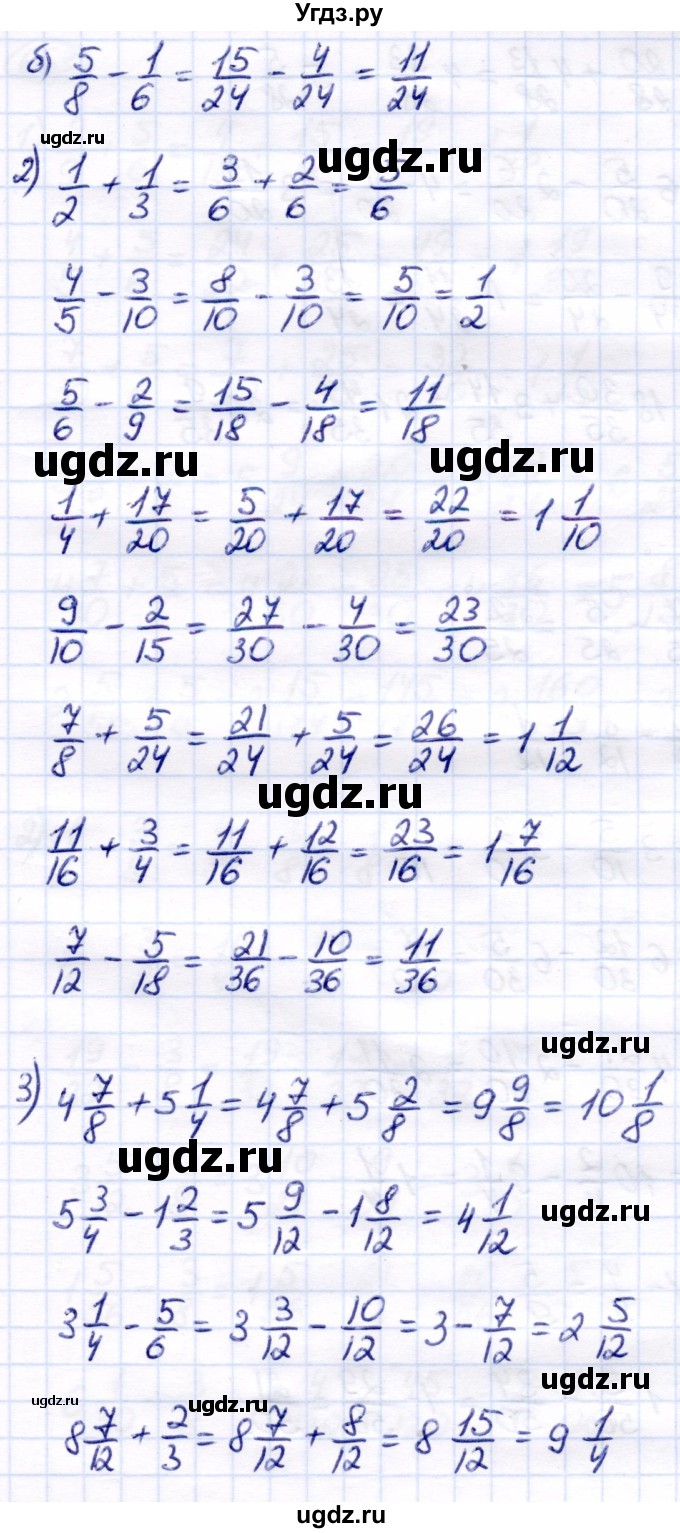 Угдз.ру
б) 5/8 - 1/6 = 15/24 - 4/24 = 11/24
ugdz.ru ugdz.ru
2) 1/2 + 1/3 = 3/6 + 2/6 = 5/6
4/5 - 3/10 = 8/10 - 3/10 = 5/10 = 1/2
5/6 - 2/9 = 15/18 - 4/18 = 11/18
ugdz.ru ugdz.ru
1/4 + 17/20 = 5/20 + 17/20 = 22/20 = 1 1/10
9/10 - 2/15 = 27/30 - 4/30 = 23/30
7/8 + 5/24 = 21/24 + 5/24 = 26/24 = 1 1/12
ugdz.ru
11/16 + 3/4 = 11/16 + 12/16 = 23/16 = 1 7/16
7/12 - 5/18 = 21/36 - 10/36 = 11/36
ugdz.ru
3) 4 7/8 + 5 1/4 = 4 7/8 + 5 2/8 = 9 9/8 = 10 1/8
ugdz.ru
5 3/4 - 1 2/3 = 5 9/12 - 1 8/12 = 4 1/12
ugdz.ru
3 1/4 - 5/6 = 3 3/12 - 10/12 = 3 - 7/12 = 2 5/12
ugdz.ru
ugdz.ru ugdz.ru
8 7/12 + 2/3 = 8 7/12 + 8/12 = 8 15/12 = 9 1/4
ugdz.ru